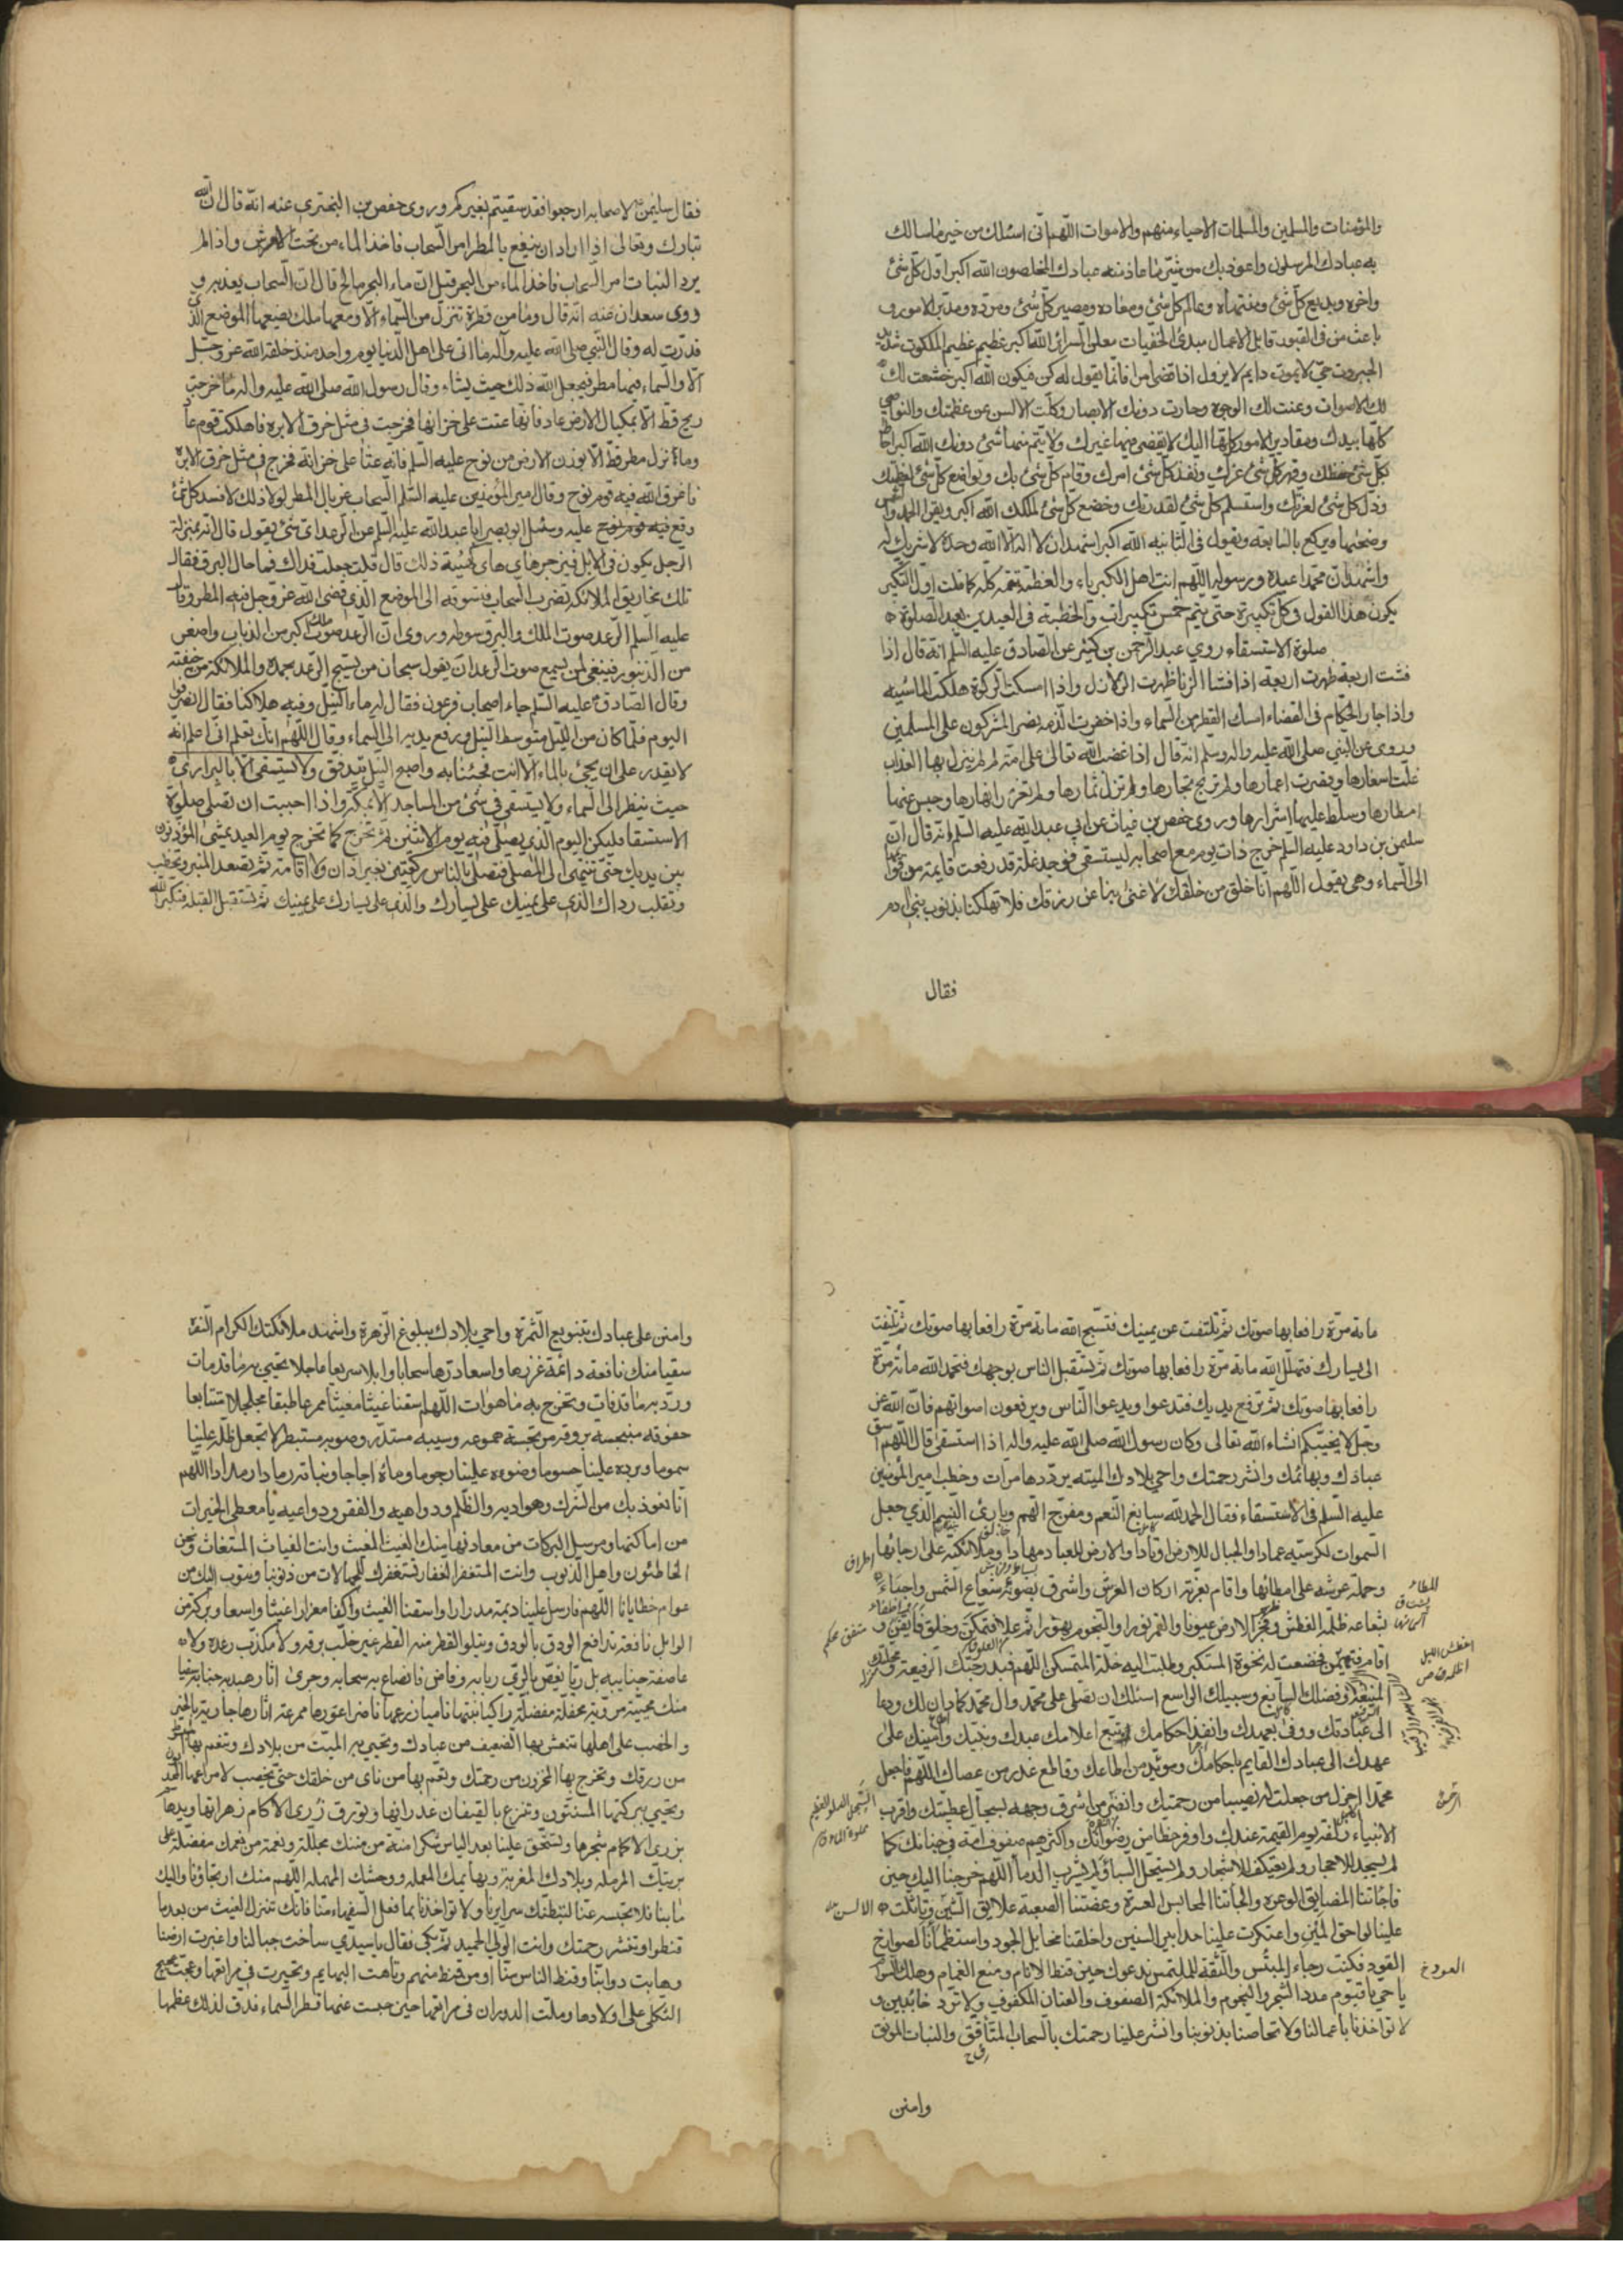 والمؤمنات والمسلمين والمسلمات الاحياء منهم والاموات اللهم انى اسئلك من خير ما سالك
به عبادك المرسلون واعوذ بك من شر ما عاذ منه عبادك المخلصون الله اكبر اول كل شئ
واخره وبديع كل شئ ومنتهاه وعالم كل شئ ومعاده ومصير كل شئ ومرده ومدبر الامور و
باعث من فى القبور قابل الاعمال مبدئ الخفيات معلن السرائر الله اكبر عظيم الملكوت شديد
الجبروت حى لا يموت دايم لا يزول اذا قضى امرا فانما يقول له كن فيكون الله اكبر خشعت لك
لك الاصوات وعنت لك الوجوه وحارت دونك الابصار وكلت الالسن عن عظمتك والنواصى
كلها بيدك ومقادير الامور كلها اليك لا يقضى فيها غيرك ولا يتم منها شئ دونك الله اكبر احاط
بكل شئ حفظك وقهر كل شئ عزك ونفذ كل شئ امرك وقام كل شئ بك وتواضع كل شئ لعظمتك
وذل كل شئ لعزتك واستسلم كل شئ لقدرتك وخضع كل شئ لملكك الله اكبر ويقرا الحمد والشمس
وضحيها ويركع بالسابعة ويقول فى الثانيه الله اكبر اشهد ان لا اله الا الله وحده لا شريك له
واشهد ان محمدا عبده ورسوله اللهم انت اهل الكبرياء والعظمة تتمه كله كما قلت اول التكبير
يكون هذا القول وكل تكبيرة حتى يتم خمس تكبيرات والخطبة فى العيدين بعد الصلوة
صلوة الاستسقاء روى عبد الرحمن بن كثير عن الصادق عليه السلم انه قال اذا
فشت اربعة ظهرت اربعة اذا فشا الزنا ظهرت الزلازل واذا امسكت الزكوة هلكت الماشيه
واذا جار الحكام فى القضاء امسك القطر من السماء واذا خفرت الذمه نصر المشركون على المسلمين
وروى عن النبى صلى الله عليه واله وسلم انه قال اذا غضب الله تعالى على امة لم ينزل بها العذاب
غلت اسعارها وقصرت اعمارها ولم تربح تجارها ولم تزل ثمارها ولم تغزر انهارها وحبس عنها
امطارها وسلط عليها اشرارها وروى حفص بن غياث عن ابى عبد الله عليه السلم انه قال ان
سليمن بن داود عليه السلم خرج ذات يوم مع اصحابه ليستسقى فوجد نملة قد رفعت قايمة من قوائمها
الى السماء وهى تقول اللهم انا خلق من خلقك لا غنى بنا عن رزقك فلا تهلكنا بذنوب بنى ادم
فقال
فقال سليمن لاصحابه ارجعوا فقد سقيتم بغيركم وروى حفص بن البخترى عنه انه قال ان الله
تبارك وتعالى اذا اراد ان ينفع بالمطر امر السحاب فاخذ الماء من تحت العرش واذا لم
يرد النبات امر السحاب فاخذ الماء من البحر قيل ان ماء البحر مالح قال ان السحاب يعذبه و
روى سعدان عنه انه قال وما من قطرة تنزل من السماء الا ومعها ملك يضعها الموضع الذى
قدرت له وقال النبى صلى الله عليه وآله ما اتى على اهل الدنيا يوم واحد منذ خلقه الله عز وجل
الا والسماء فيها مطر فيجعل الله ذلك حيث يشاء وقال رسول الله صلى الله عليه واله ما خرجت
ريح قط الا بمكيال الا زمن عاد فانها عتت على خزانها فخرجت فى مثل خرق الابره فاهلكت قوم عاد
وما نزل مطر قط الا بوزن الا زمن نوح عليه السلم فانه عتا على خزانه فخرج فى مثل خرق الابره
فاغرق الله فيه قوم نوح وقال امير المؤمنين عليه السلم السحاب غربال المطر لولا ذلك لافسد كل شئ
وقع عليه وسئل ابو بصير ابا عبد الله عليه السلم عن الرعد اى شئ يقول قال انه بمنزلة
الرجل يكون فى الابل فيزجرها هاى هاى كهيئة ذلك قال قلت جعلت فداك فما حال البرق فقال
تلك مخاريق الملائكة تضرب السحاب فتسوقه الى الموضع الذى قضى الله عز وجل فيه المطر وقال
عليه السلم الرعد صوت الملك والبرق سوطه وروى ان الرعد صوت ملك اكبر من الذباب واصغر
من الزنبور فينبغى لمن يسمع صوت الرعد ان يقول سبحان من يسبح الرعد بحمده والملائكة من خيفته
وقال الصادق عليه السلم جاء اصحاب فرعون فقال له ماء النيل وفيه هلاكنا فقال انصرفوا
اليوم فلما كان من الليل متوسط النيل ورفع يديه الى السماء وقال اللهم انك تعلم انى اعلم انه
لا يقدر على ان يجئ بالماء الا انت فجئنا به واصبح النيل يتدفق ولا تستسقى الا بالبرارى
حيث ينظر الى السماء ولا يستسقى فى شئ من المساجد الا بمكة واذا احببت ان تصلى صلوة
الاستسقا فليكن اليوم الذى يصلى فيه يوم الاثنين ثم تخرج كما تخرج يوم العيد يمشى المؤذنون
بين يديك حتى تنتهى الى المصلى فتصلى بالناس ركعتين بغير اذان ولا اقامة ثم تصعد المنبر وتخطب
وتقلب رداك الذى على يمينك على يسارك والذى على يسارك على يمينك ثم تستقبل القبله فتكبر الله
مائة مرة رافعا بها صوتك ثم تلتفت عن يمينك فتسبح الله مائة مرة رافعا بها صوتك ثم تلتفت
الى يسارك فتهلل الله مائة مرة رافعا بها صوتك ثم تستقبل الناس بوجهك فتحمد الله مائة مرة
رافعا بها صوتك ثم ترفع يديك فتدعوا ويدعوا الناس ويرفعون اصواتهم فان الله عز
وجل لا يخيبكم انشاء الله تعالى وكان رسول الله صلى الله عليه واله اذا استسقى قال اللهم اسق
عبادك وبهائمك وانشر رحمتك واحى بلادك الميته يرددها مرات وخطب امير المؤمنين
عليه السلم فى الاستسقاء فقال الحمد لله سابغ النعم ومفرج الهم وبارئ النسم الذى جعل
السموات لكرسيه عمادا والجبال للارض اوتادا والارض للعباد مهادا وملائكته على ارجائها
وحملة عرشه على امطائها واقام بعزته اركان العرش واشرق بضوئه شعاع الشمس واحياء
بشعاعه ظلمة الغطش وفجر الارض عيونا والقمر نورا والنجوم بهورا ثم علا فتمكن وخلق فاتقن و
اقام فتهيمن فخضعت له نخوة المستكبر وطلبت اليه خلة المتمسكن اللهم فبدرجتك الرفيعة ومحلتك
المنيعة وفضلك السابغ وسبيلك الواسع اسئلك ان تصلى على محمد وال محمد كما دان لك ودعا
الى عبادتك ووفى بعهدك وانفذ احكامك واتبع اعلامك عبدك ونبيك وامينك على
عهدك الى عبادك القايم باحكامك ومويد من اطاعك وقاطع عذر من عصاك اللهم فاجعل
محمدا اجزل من جعلت له نصيبا من رحمتك وانضر من اشرق وجهه لسجال عطيتك واقرب
الانبياء زلفة يوم القيمة عندك واوفر حظا من رضوانك واكثرهم صفوف امة فى جنانك كما
لم يسجد للاحجار ولم يعتكف للاشجار ولم يستحل السباء ولم يشرب الدماء اللهم خرجنا اليك حين
فاجأتنا المضايق الوعره والجأتنا المحابس العسرة وعضتنا الصعبه علائق الشين وتاثلت
علينا لواحق المين واعتكرت علينا حدابير السنين واخلفتنا مخايل الجود واستظمأنا لصوارخ
القود فكنت رجاء المبتئس والثقة للملتمس ندعوك حين قنط الانام ومنع الغمام وهلك السوام
يا حى يا قيوم عدد الشجر والنجوم والملائكة الصفوف والعنان المكفوف ولا ترد خائبين و
لا تواخذنا باعمالنا ولا تحاصنا بذنوبنا وانشر علينا رحمتك بالسحاب المتأقق والنبات المونق
وامنن
وامنن على عبادك بتنويع الثمرة واحى بلادك ببلوغ الزهرة واشهد ملائكتك الكرام السفرة
سقيا منك نافعه دائمة غزرها واسعا درها سحابا وابلا سريعا عاجلا تحيى به ما قد مات
وترد به ما قد فات وتخرج به ما هو ات اللهم اسقنا غيثا مغيثا ممرعا طبقا مجلجلا متتابعا
خفوقه منبجسة بروقه مرتجسة هموعه وسيبه مستدر وصوبه مستبطر لا تجعل ظله علينا
سموما وبرده علينا حسوما وضوءه علينا رجوما وماءه اجاجا ونباته رمادا رمددا اللهم
انا نعوذ بك من الشرك وهواديه والظلم ودواهيه والفقر ودواعيه يا معطى الخيرات
من اماكنها ومرسل البركات من معادنها منك الغيث المغيث وانت الغياث المستغاث ونحن
الخاطئون واهل الذنوب وانت المستغفر الغفار نستغفرك للجهالات من ذنوبنا ونتوب اليك من
عوام خطايانا اللهم فارسل علينا ديمة مدرارا واسقنا الغيث واكفا مغزارا غيثا واسعا وبركة من
الوابل نافعة تدافع الودق بالودق ويتلو القطر منه القطر غير خلب برقه ولا مكذب رعده ولا
عاصفة جنايبه بل ريا يغص بالرى ربابه وفاض فانصاع به سحابه وجرى اثار هيدبه جنابه سقيا
منك محيية مروية محفلة مفضلة زاكيا نبتها ناميا زرعها ناضرا عودها ممرعة اثارها جارية بالخير
والخصب على اهلها تنعش بها الضعيف من عبادك وتحيى به الميت من بلادك وتنعم بها المبسوط
من رزقك وتخرج بها المخزون من رحمتك وتعم بها من ناى من خلقك حتى يخصب لامراعها المجدبون
ويحيى ببركتها المسنتون وتترع بالقيعان غدرانها وتورق ذرى الاكام زهراتها ويدهام
بذرى الاكام شجرها وتستحق علينا بعد الياس شكرا منة من مننك مجللة ونعمة من نعمك مفضلة على
بريتك المرمله وبلادك المغربة وبهائمك المعمله ووحشك المهمله اللهم منك ارتجاؤنا واليك
مابنا فلا تحبسه عنا لتبطنك سرايرنا ولا تواخذنا بما فعل السفهاء منا فانك تنزل الغيث من بعد ما
قنطوا وتنشر رحمتك وانت الولى الحميد ثم بكى فقال يا سيدى ساخت جبالنا واغبرت ارضنا
وهامت دوابنا وقنط الناس منا او من قنط منهم وتاهت البهايم وتحيرت فى مراتعها وعجت عجيج
الثكلى على اولادها وملت الدوران فى مراتعها حين حبست عنها قطر السماء فدق لذلك عظمها